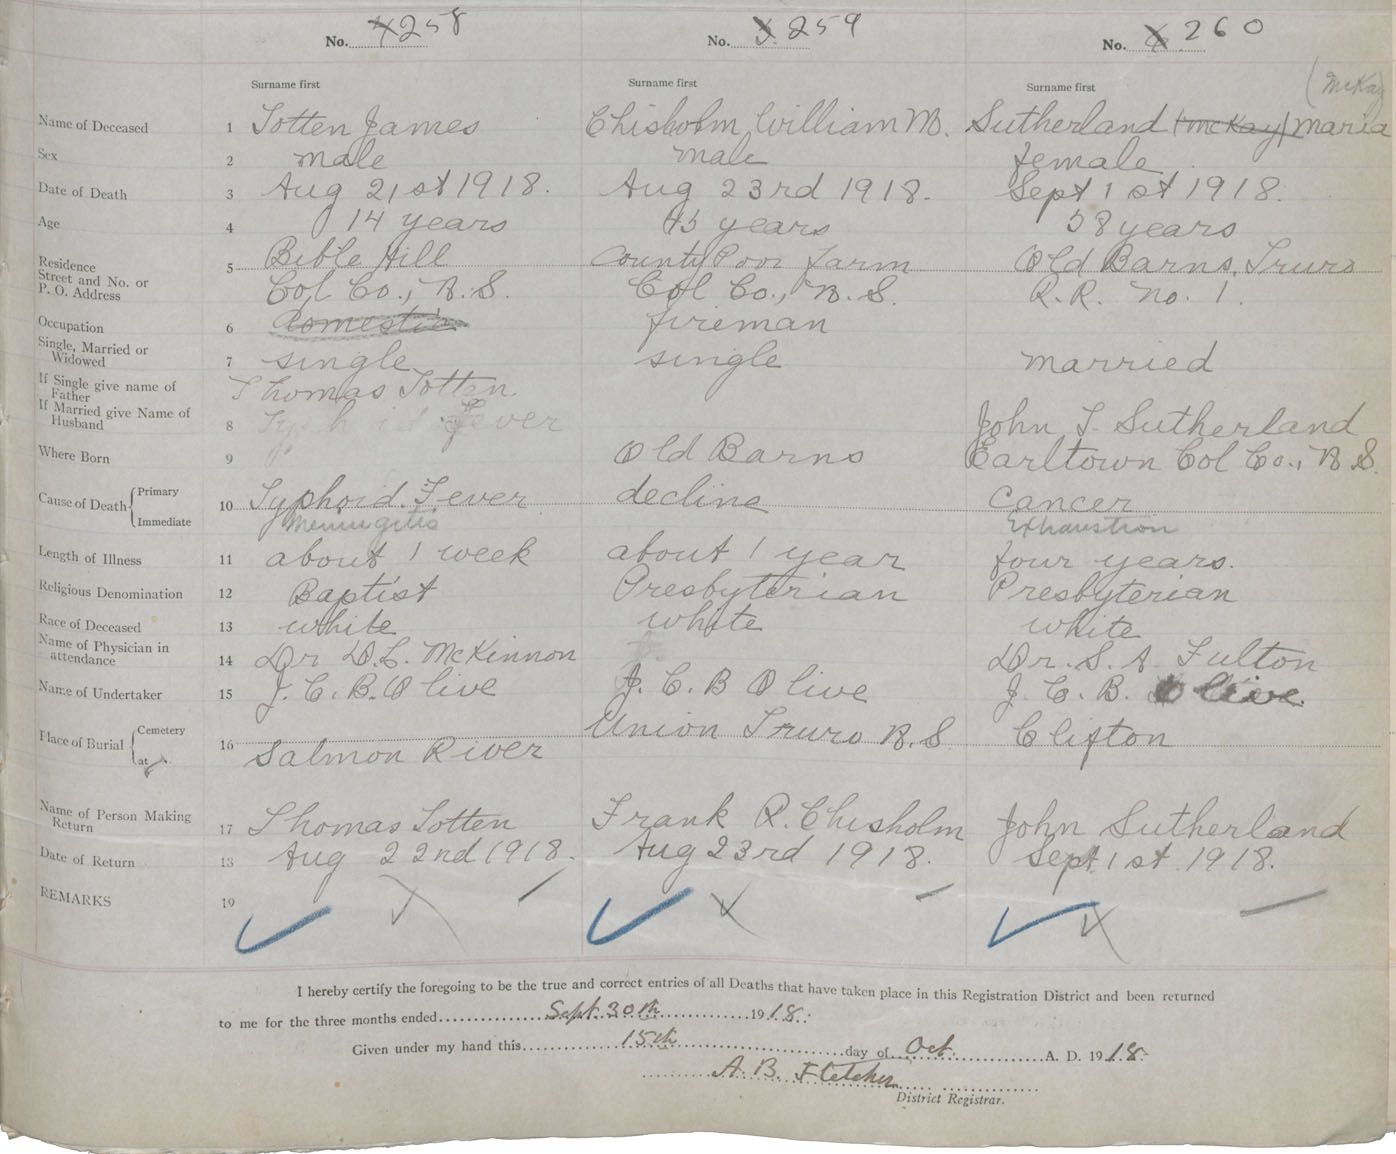 No. 258 No. 259 No. 260
Surname first Surname first Surname first (McKay)
Name of Deceased 1 Totten James Chisholm, William M. Sutherland (McKay) Maria
Sex 2 male male female
Date of Death 3 Aug 21st 1918. Aug 23rd 1918. Sept 1st 1918.
Age 4 14 years 45 years 58 years
Residence Street and No. or P. O. Address 5 Bible Hill County Poor farm Old Barns, Truro
Col Co., N.S. Col Co., N.S. R.R. No. 1.
Occupation 6 domestic fireman
Single, Married or Widowed 7 single single married
If Single give name of Father Thomas Totten.
If Married give Name of Husband 8 Typhoid Fever John T. Sutherland
Where Born 9 Old Barns Earltown Col Co., N.S.
Cause of Death { Primary 10 Typhoid Fever decline cancer
Immediate Meningitis Exhaustion
Length of Illness 11 about 1 week about 1 year four years.
Religious Denomination 12 Baptist Presbyterian Presbyterian
Race of Deceased 13 white white white
Name of Physician in attendance 14 Dr D.L. McKinnon Dr. S. A. Fulton
Name of Undertaker 15 J. C. B. Olive J. C. B Olive J. C. B. Olive.
Place of Burial { Cemetery 16 Union Truro N.S Clifton
at Salmon River
Name of Person Making Return 17 Thomas Totten Frank R. Chisholm John Sutherland
Date of Return 18 Aug 22nd 1918. Aug 23rd 1918. Sept. 1st. 1918.
REMARKS 19
I hereby certify the foregoing to be the true and correct entries of all Deaths that have taken place in this Registration District and been returned
to me for the three months ended Sept. 30th 1918.
Given under my hand this 15th day of Oct. A. D. 1918.
A. B. Fletcher
District Registrar.